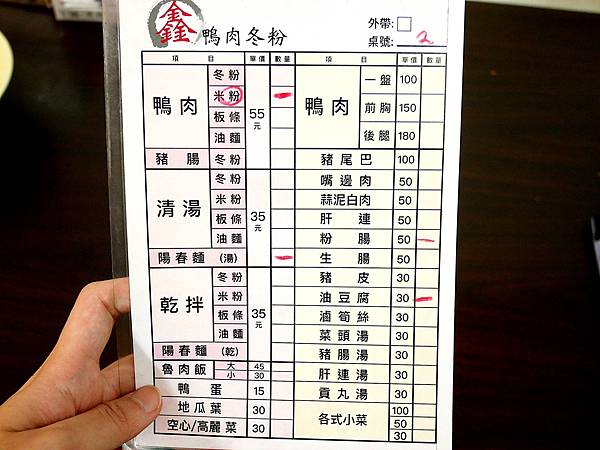 鑫 鴨肉冬粉
外帶:
桌號: 2
項 目 單價 數量 項 目 單價 數量
鴨肉 冬粉 米粉 板條 油麵 55元
豬腸 冬粉
清湯 冬粉 米粉 板條 油麵 35元
陽春麵 (湯)
乾拌 冬粉 米粉 板條 油麵 35元
陽春麵 (乾)
魯肉飯 大 45 小 30
鴨蛋 15
地瓜葉 30
空心/高麗菜 30
鴨肉 一盤 100 前胸 150 後腿 180
豬尾巴 100
嘴邊肉 50
蒜泥白肉 50
肝連 50
粉腸 50
生腸 50
豬皮 30
油豆腐 30
滷筍絲 30
菜頭湯 30
豬腸湯 30
肝連湯 30
貢丸湯 30
各式小菜 100 50 30